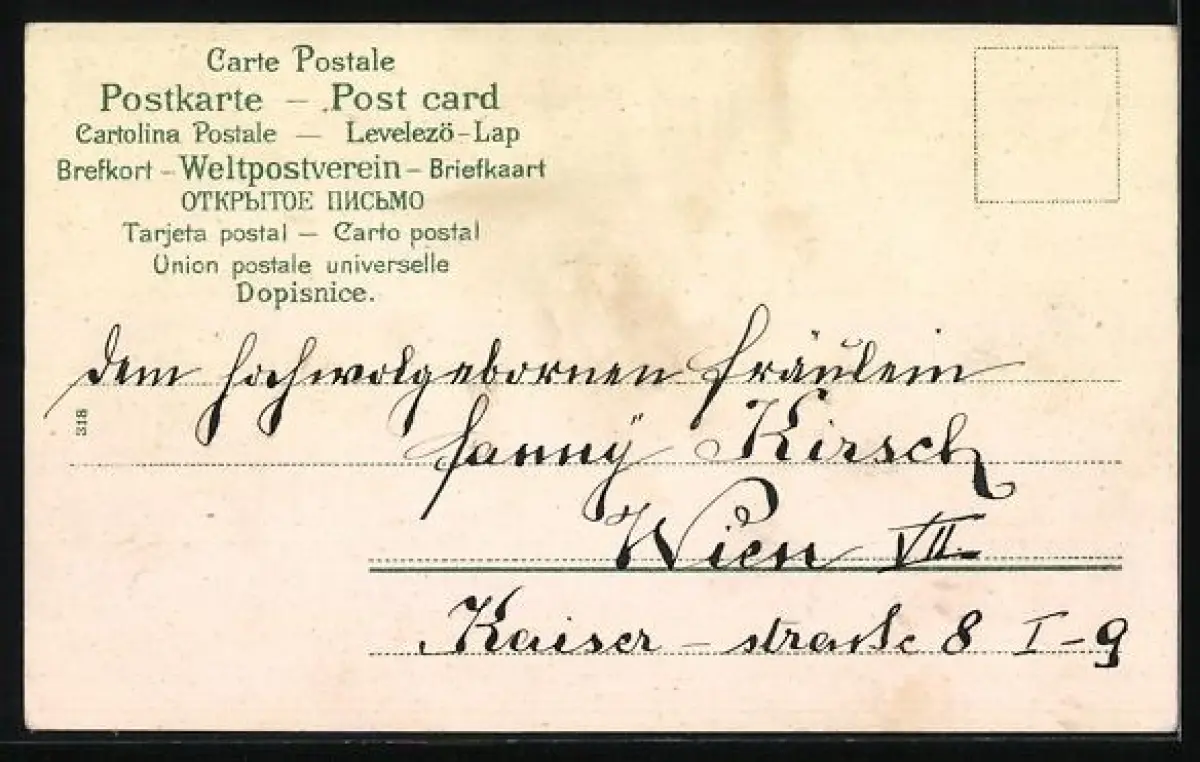 Carte Postale
Postkarte — Post card
Cartolina Postale — Levelezö-Lap
Brefkort - Weltpostverein - Briefkaart
ОТКРЫТОЕ ПИСЬМО
Tarjeta postal — Carto postal
Union postale universelle
Dopisnice.
dem hochwolgebornen Fräulein
318
Fanny Kirsch
Wien VII.
Kaiser-strasse 8 I-9